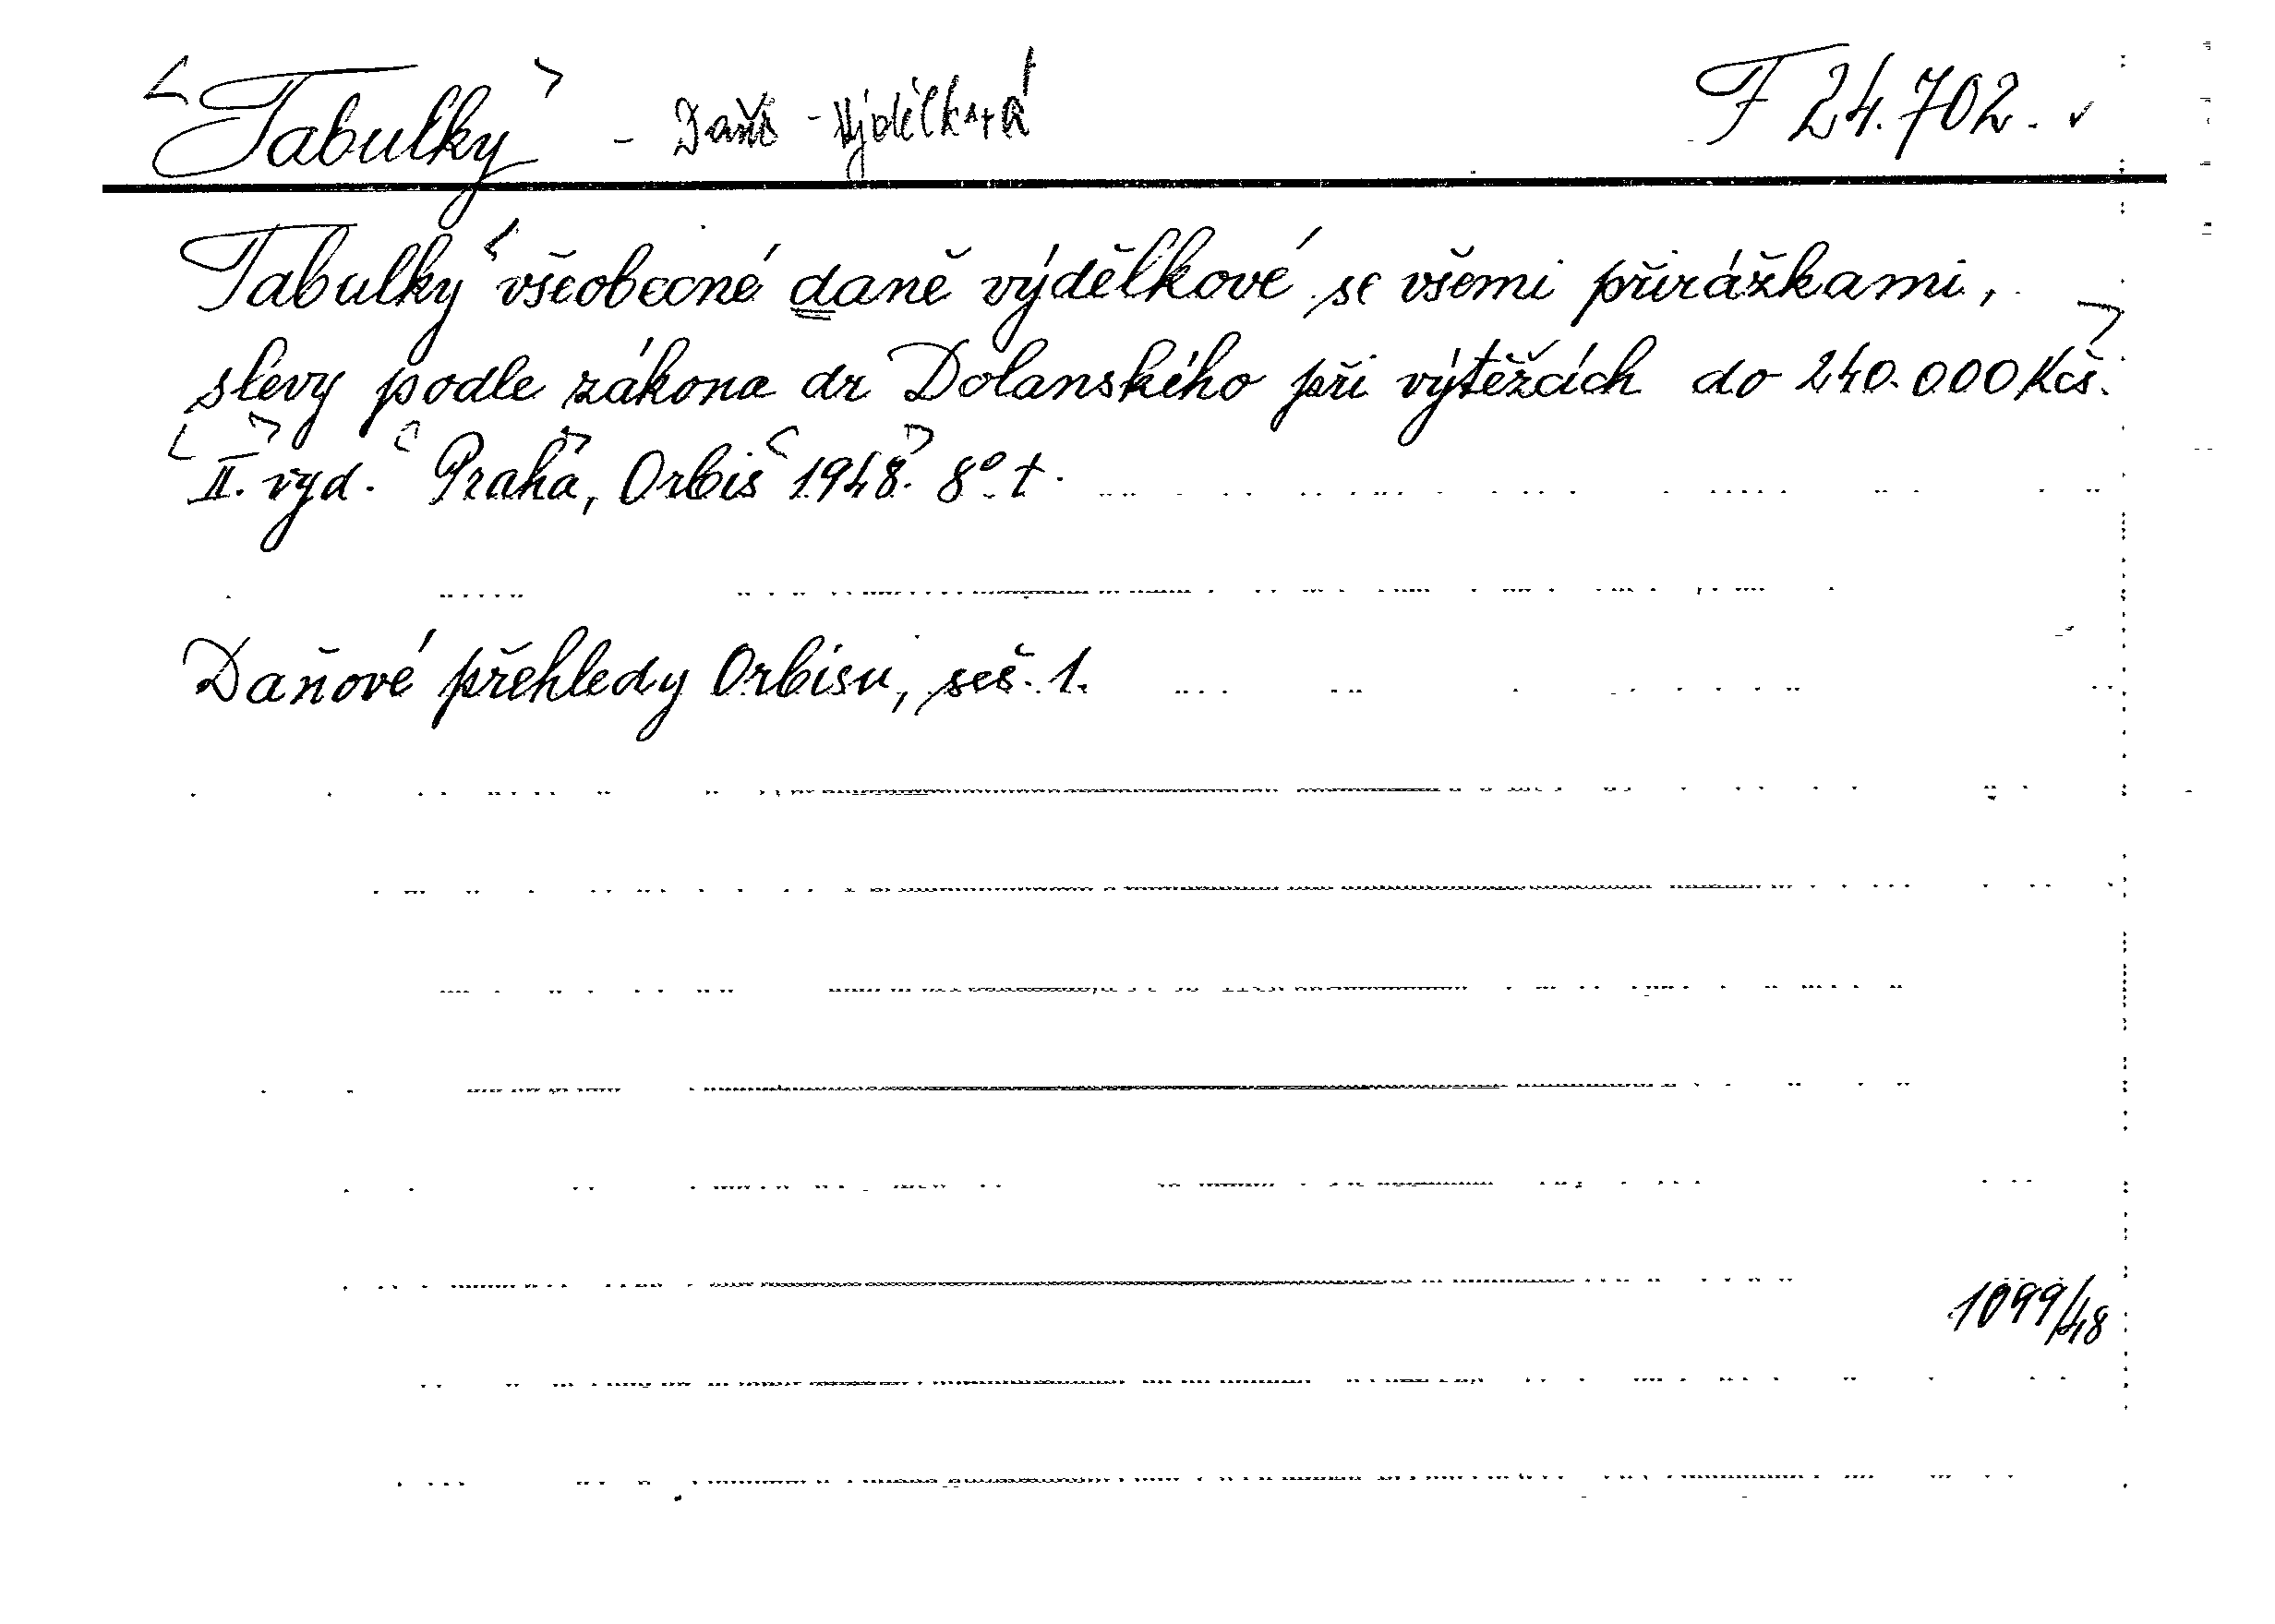 Tabulky - Daně - F 24.702.
Tabulky všeobecné daně výdělkové se všemi přirážkami,
slevy podle zákona dr Dolanského při výtěžcích do 240.000 Kčs.
II. vyd. Praha, Orbis 1948. 8° t.
Daňové přehledy Orbisu, seš. 1.
1099/48